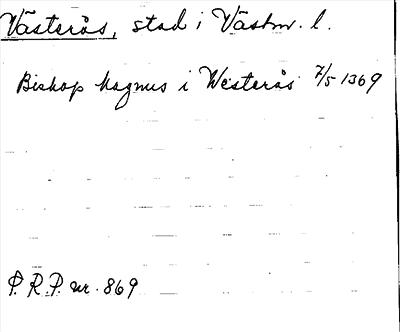 Västerås, stad i Västm. l.
Biskop Magnus i Westerås 7/5 1369
P. R. P. nr. 869